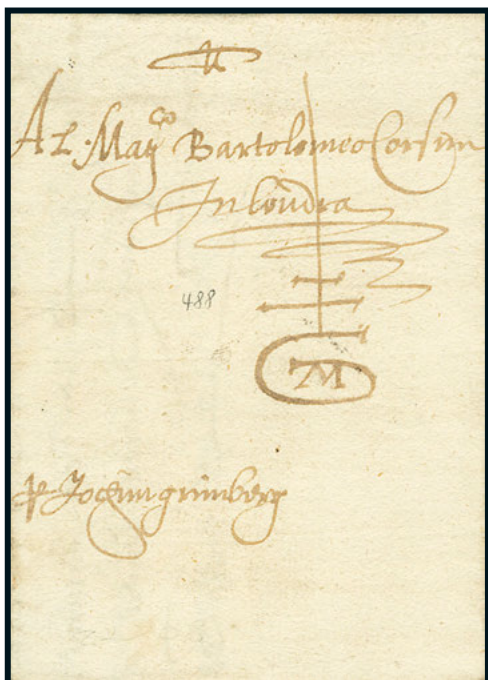 Al Mag<sup>co</sup> Bartolomeo Corsini
In londra
488
M
Jochim grimberg